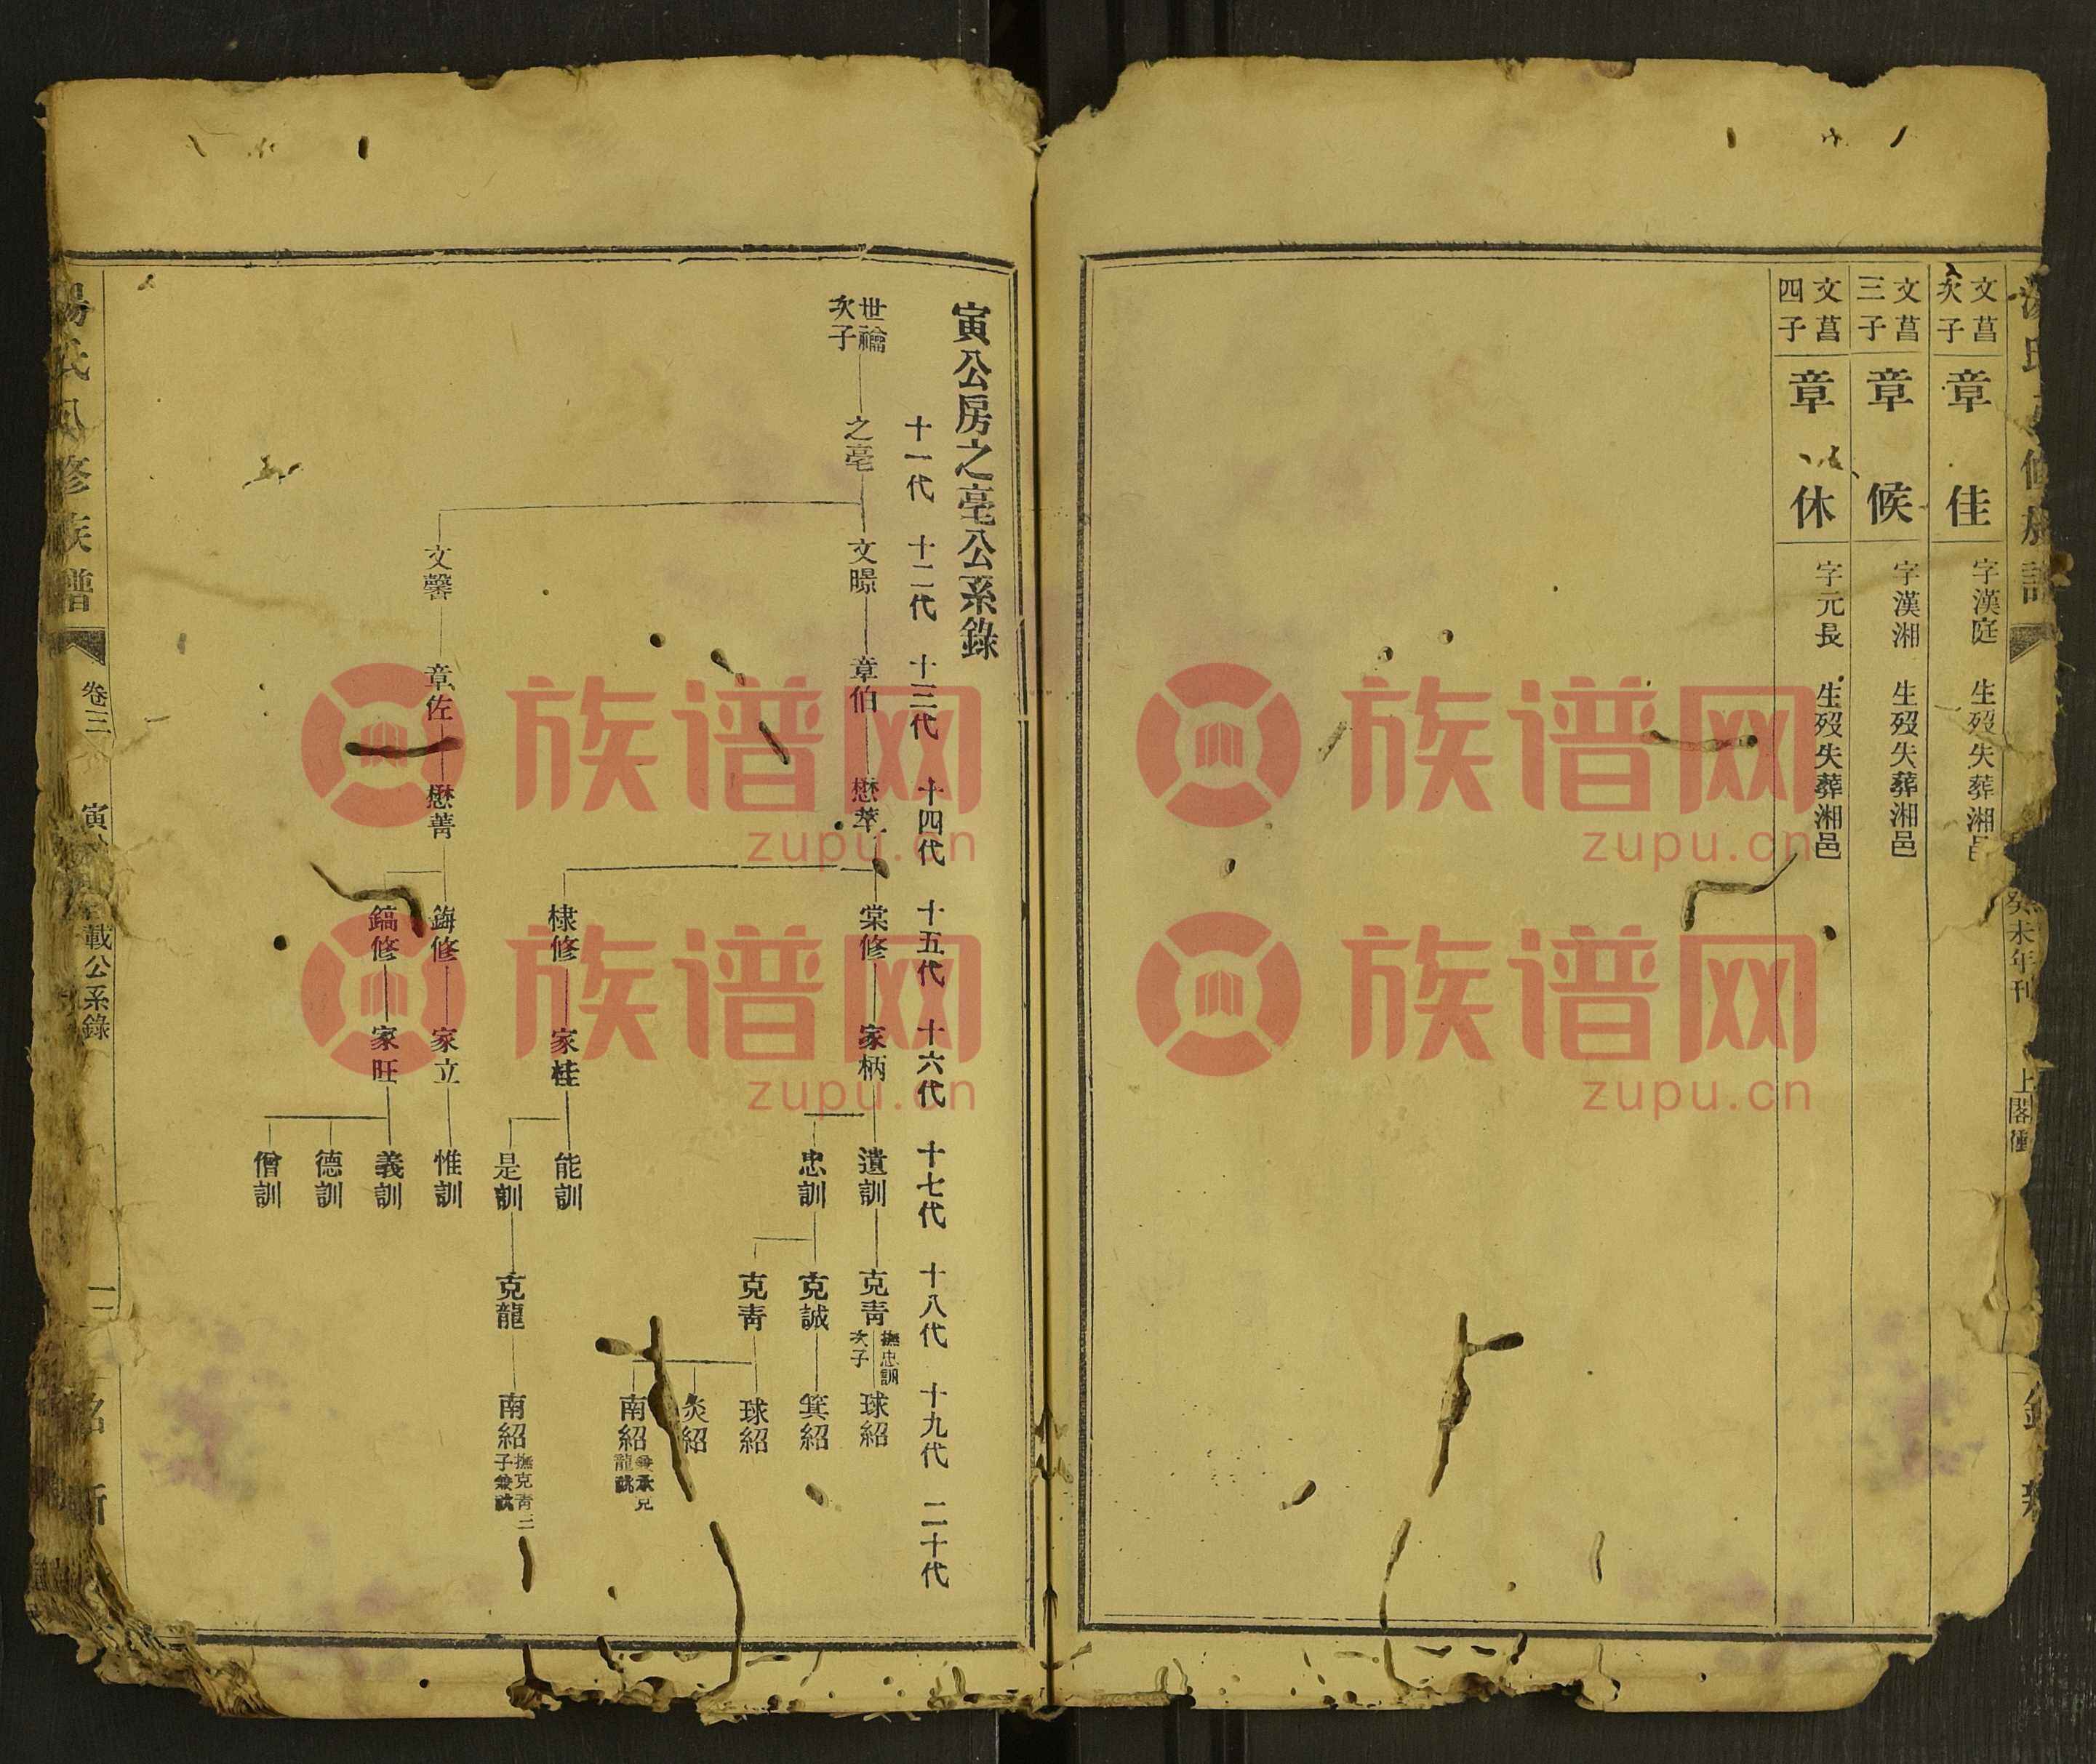 文菖次子
章佳
字漢庭 生歿失葬湘邑
文菖三子
章候
字漢湘 生歿失葬湘邑
文菖四子
章休
字元長 生歿失葬湘邑
癸未年刊
上閣衝
寅公房之亳公系錄
十一代 十二代 十三代 十四代 十五代 十六代 十七代 十八代 十九代 二十代
世禴次子
之亳
文暻 章伯 懋萃
棠修 家柄
遺訓 克青 撫忠訓次子 球紹
忠訓 克誠 箕紹
克青 球紹
炎紹
南紹 兼承克龍祧
棣修 家桂
能訓
是訓 克龍 南紹 撫克青三子兼祧
文馨 章佐 懋菁
鋂修 家立 惟訓
鎬修 家旺 義訓
德訓
僧訓
修族譜
卷三
載公系錄
族谱网 zupu.cn
族谱网 zupu.cn
族谱网 zupu.cn
族谱网 zupu.cn